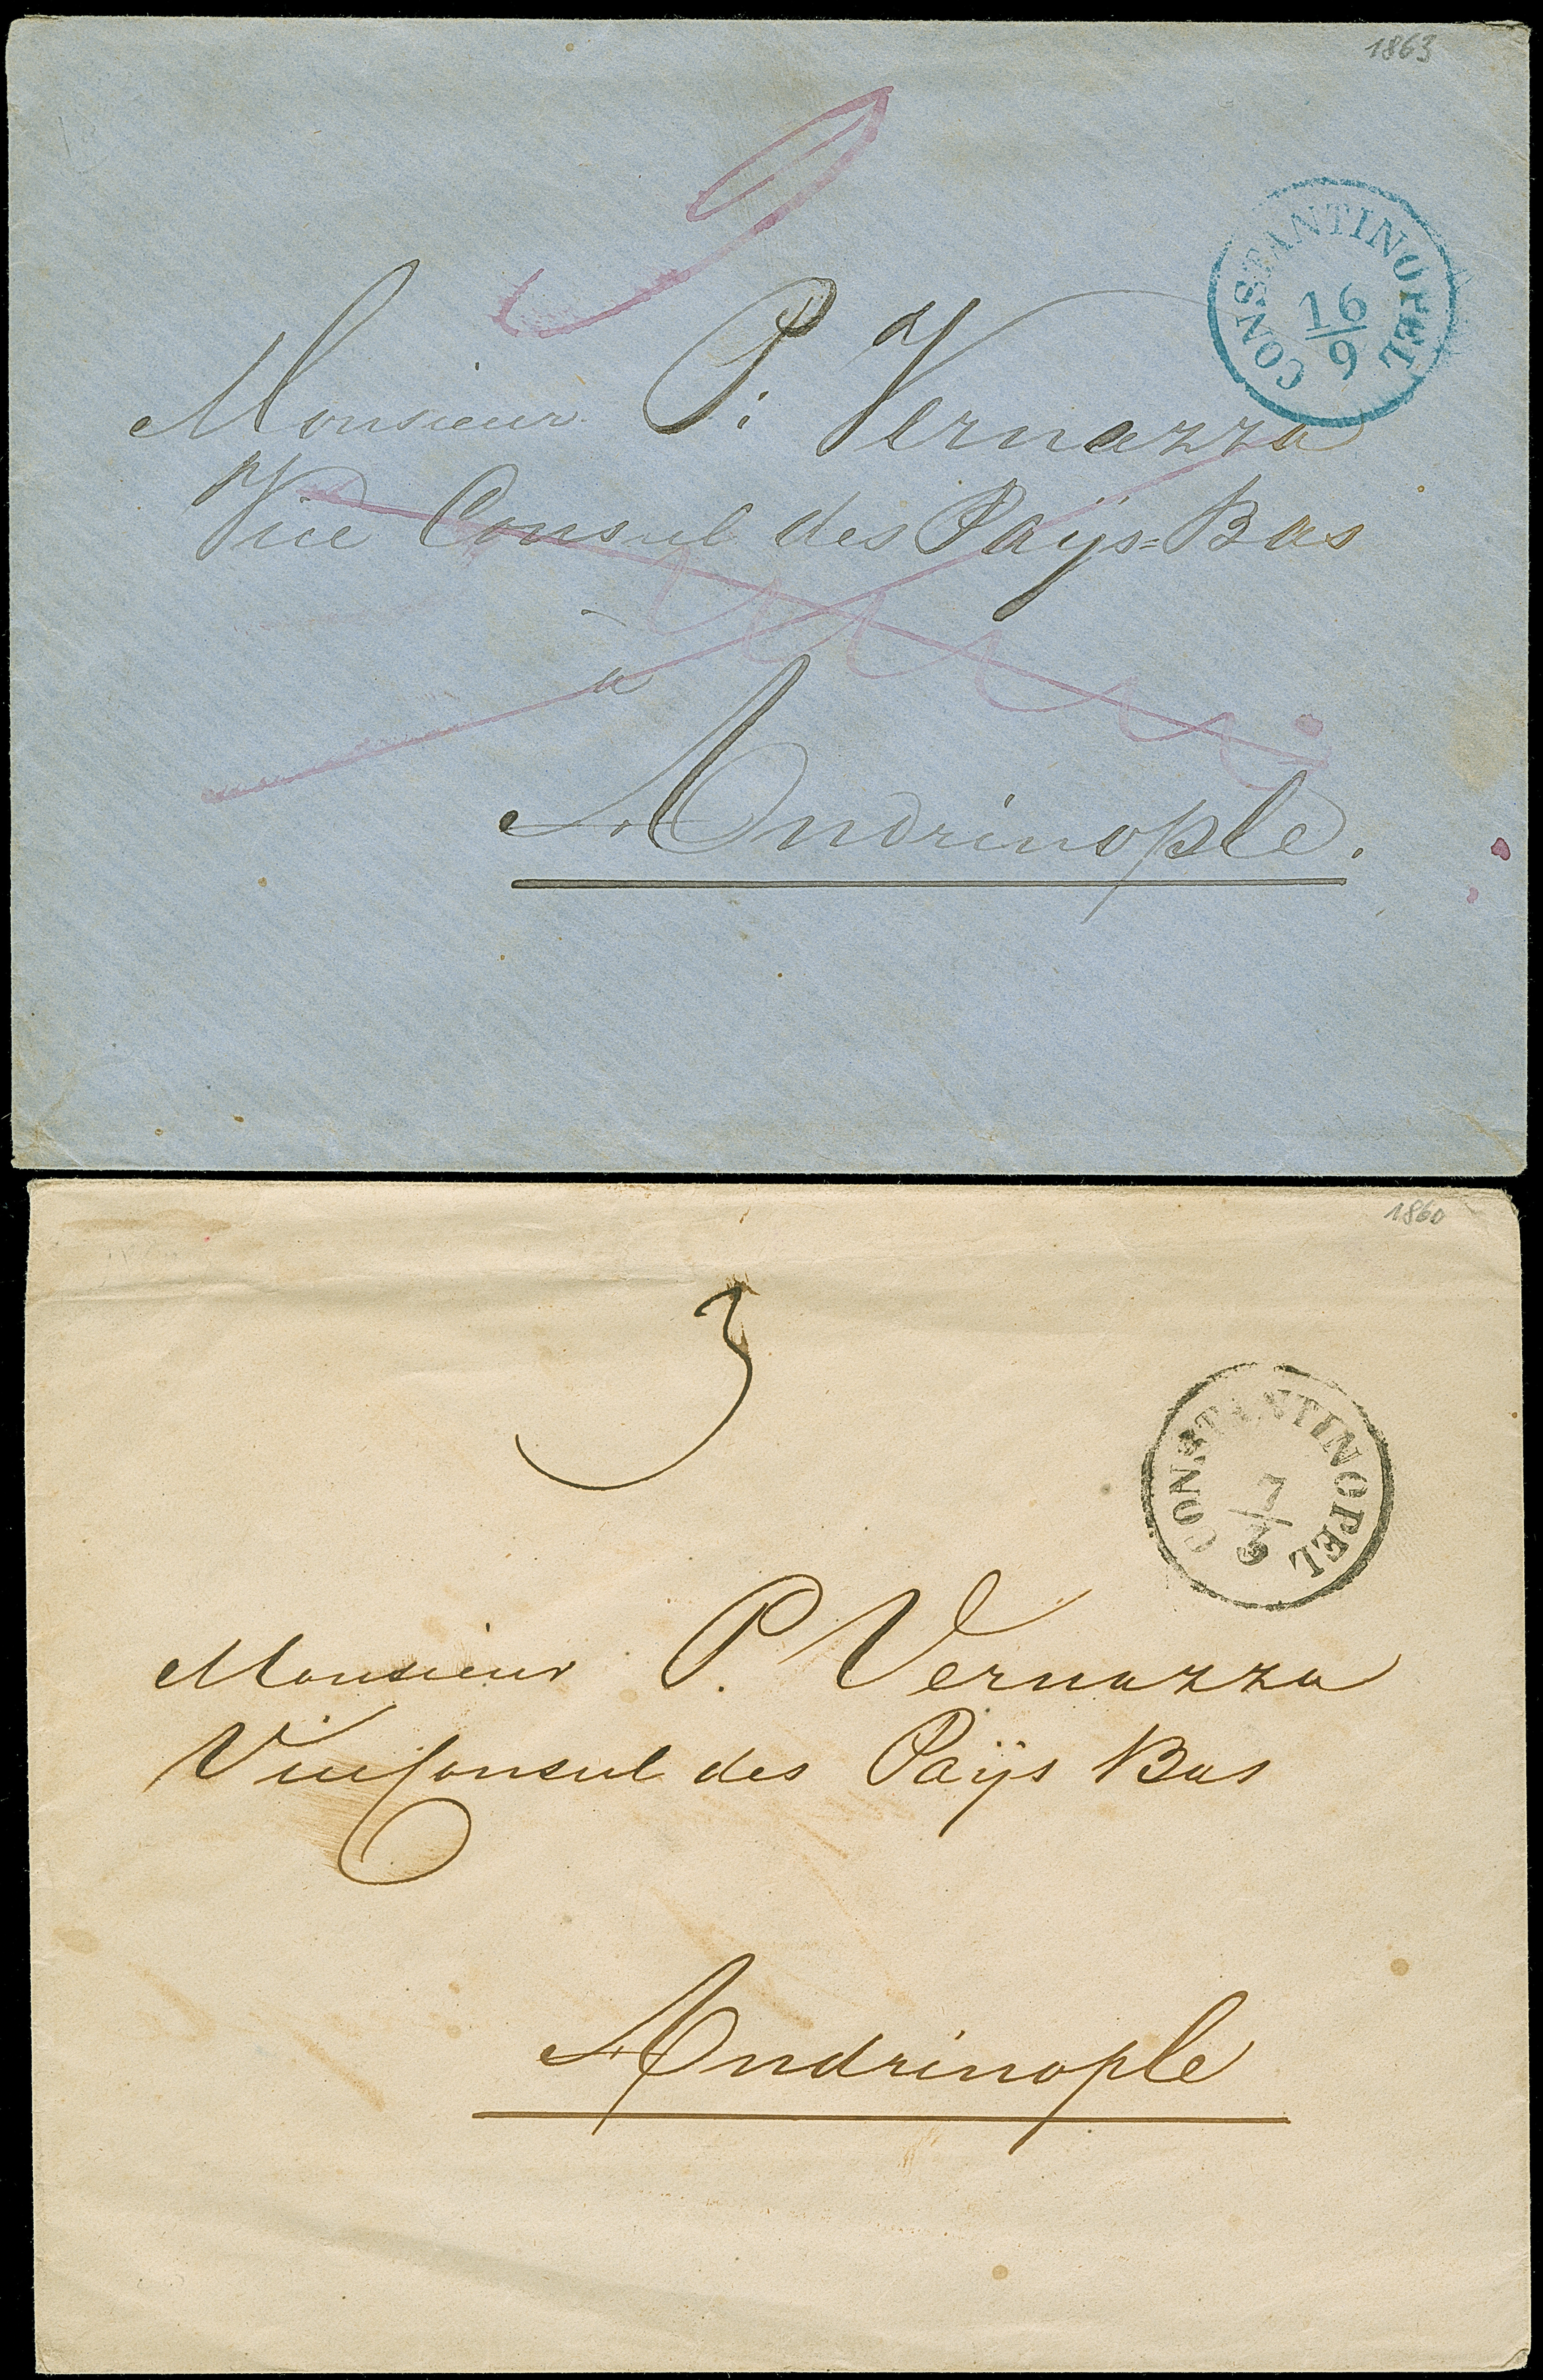 1863
CONSTANTINOPEL
16
9
Monsieur P: Vernazza
Vice Consul des Paÿs=Bas
à
Andrinople.
1860
3
CONSTANTINOPEL
7
3
Monsieur P. Vernazza
Vice Consul des Paÿs Bas
Andrinople